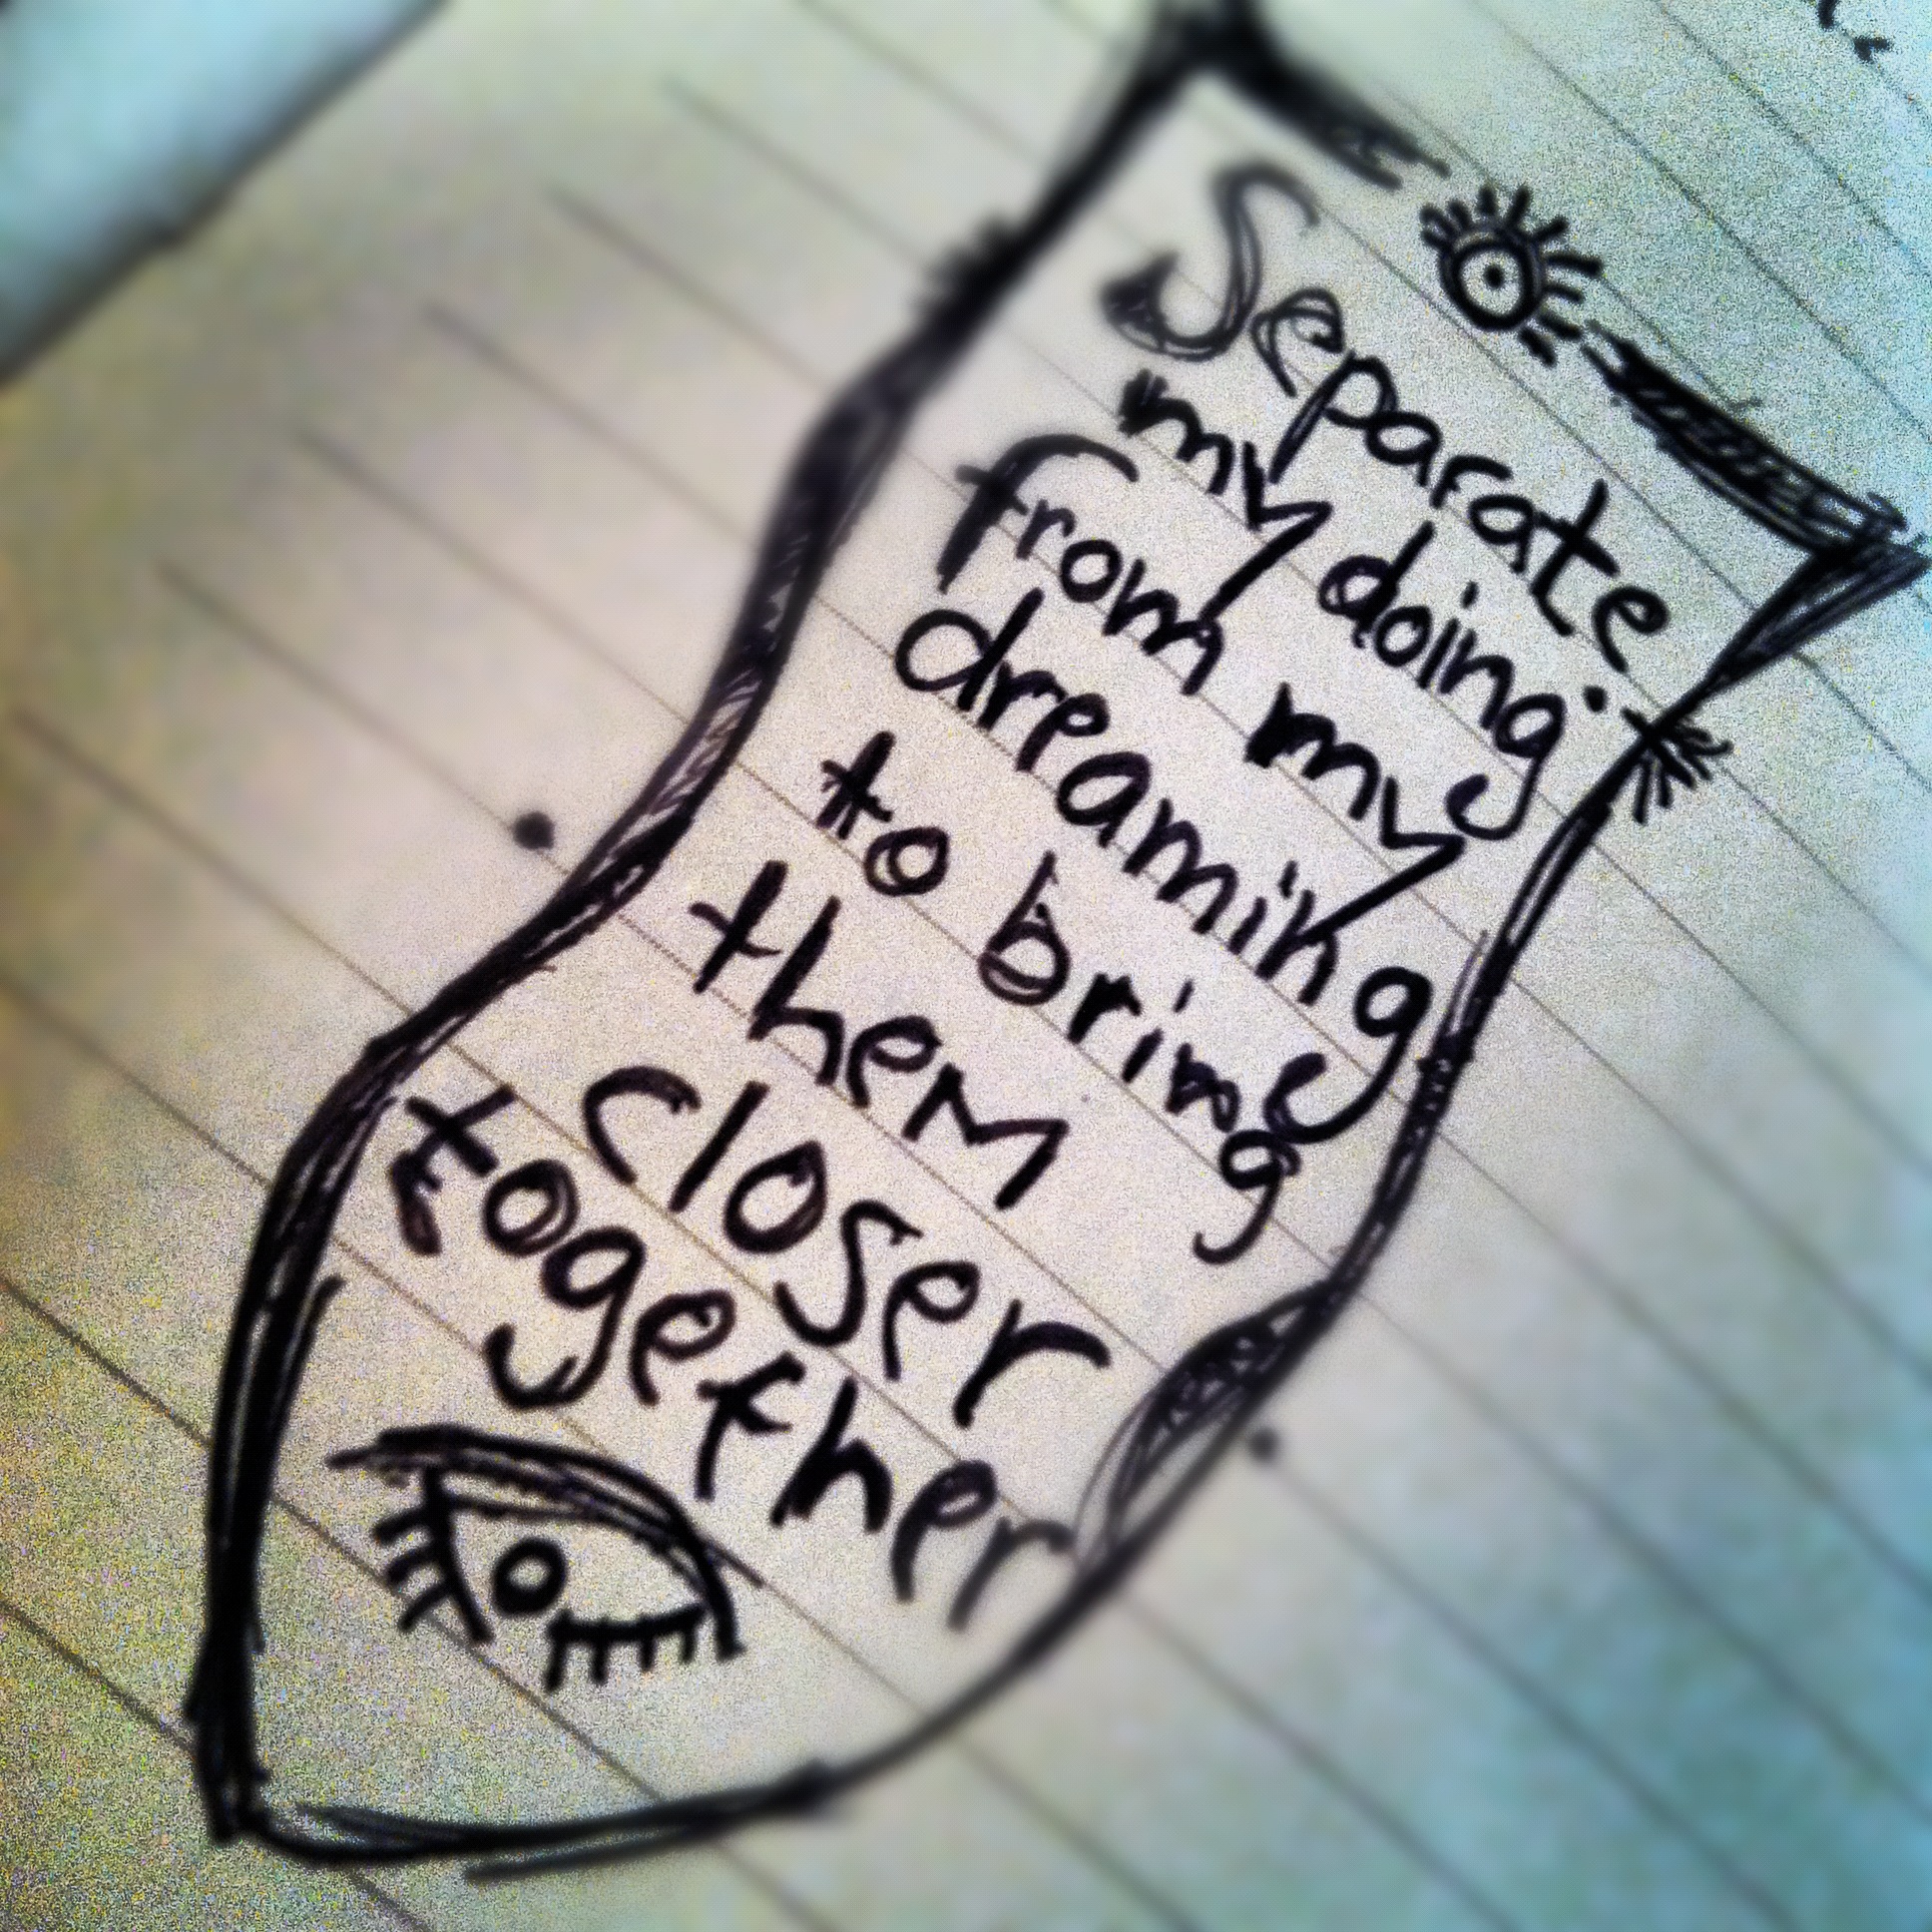 Separate
my doing
from my
dreaming
to bring
them
closer
together